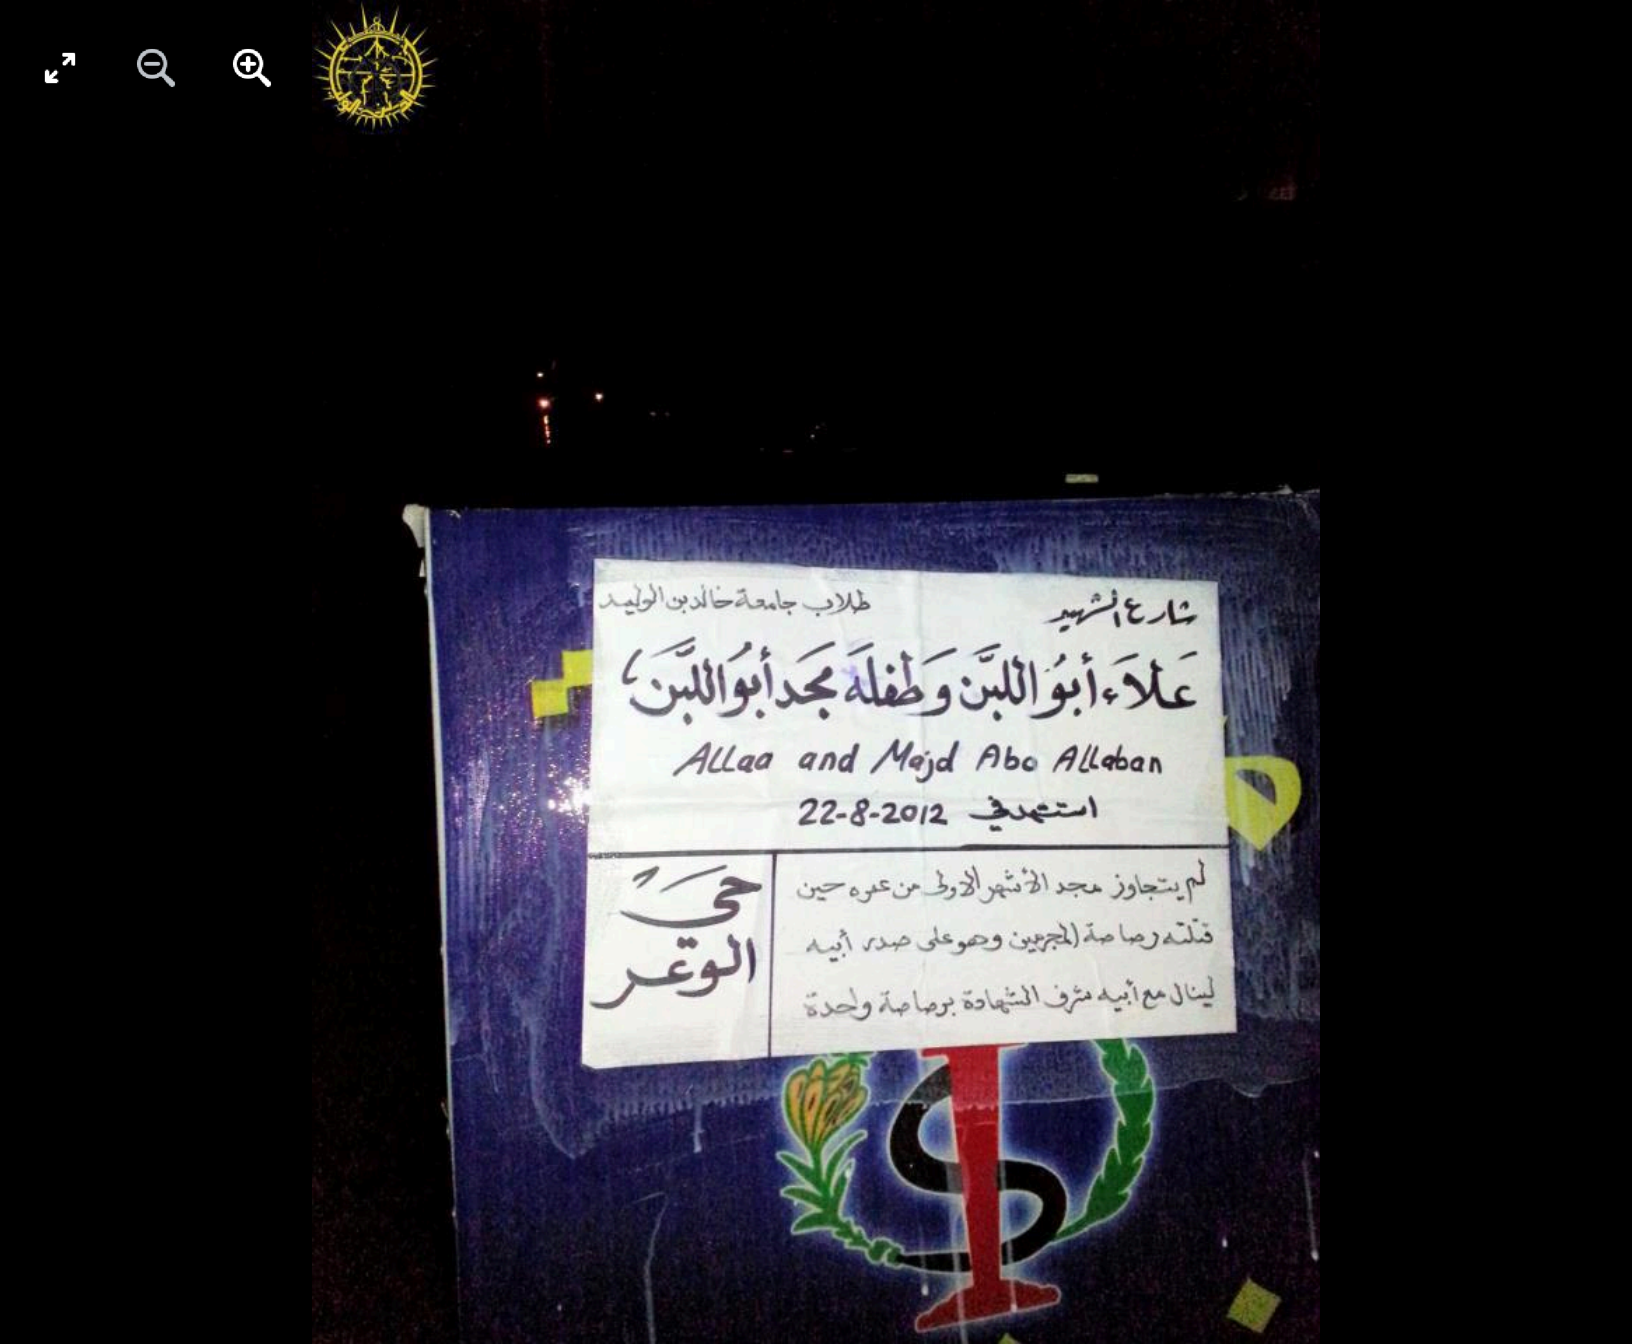 شارع الشهيد
طلاب جامعة خالد بن الوليد
عَلاَء أبوُ اللبَّن وَطفلَهَ مجَد أبوُ اللبَّن
ALLaa and Majd Abo ALLaban
استشهد في 22-8-2012
لم يتجاوز مجد الأشهر الاولى من عمره حين
قتلته رصاصة المجرمين وهو على صدر أبيه
لينال مع أبيه شرف الشهادة برصاصة واحدة
حَي
الوَعر